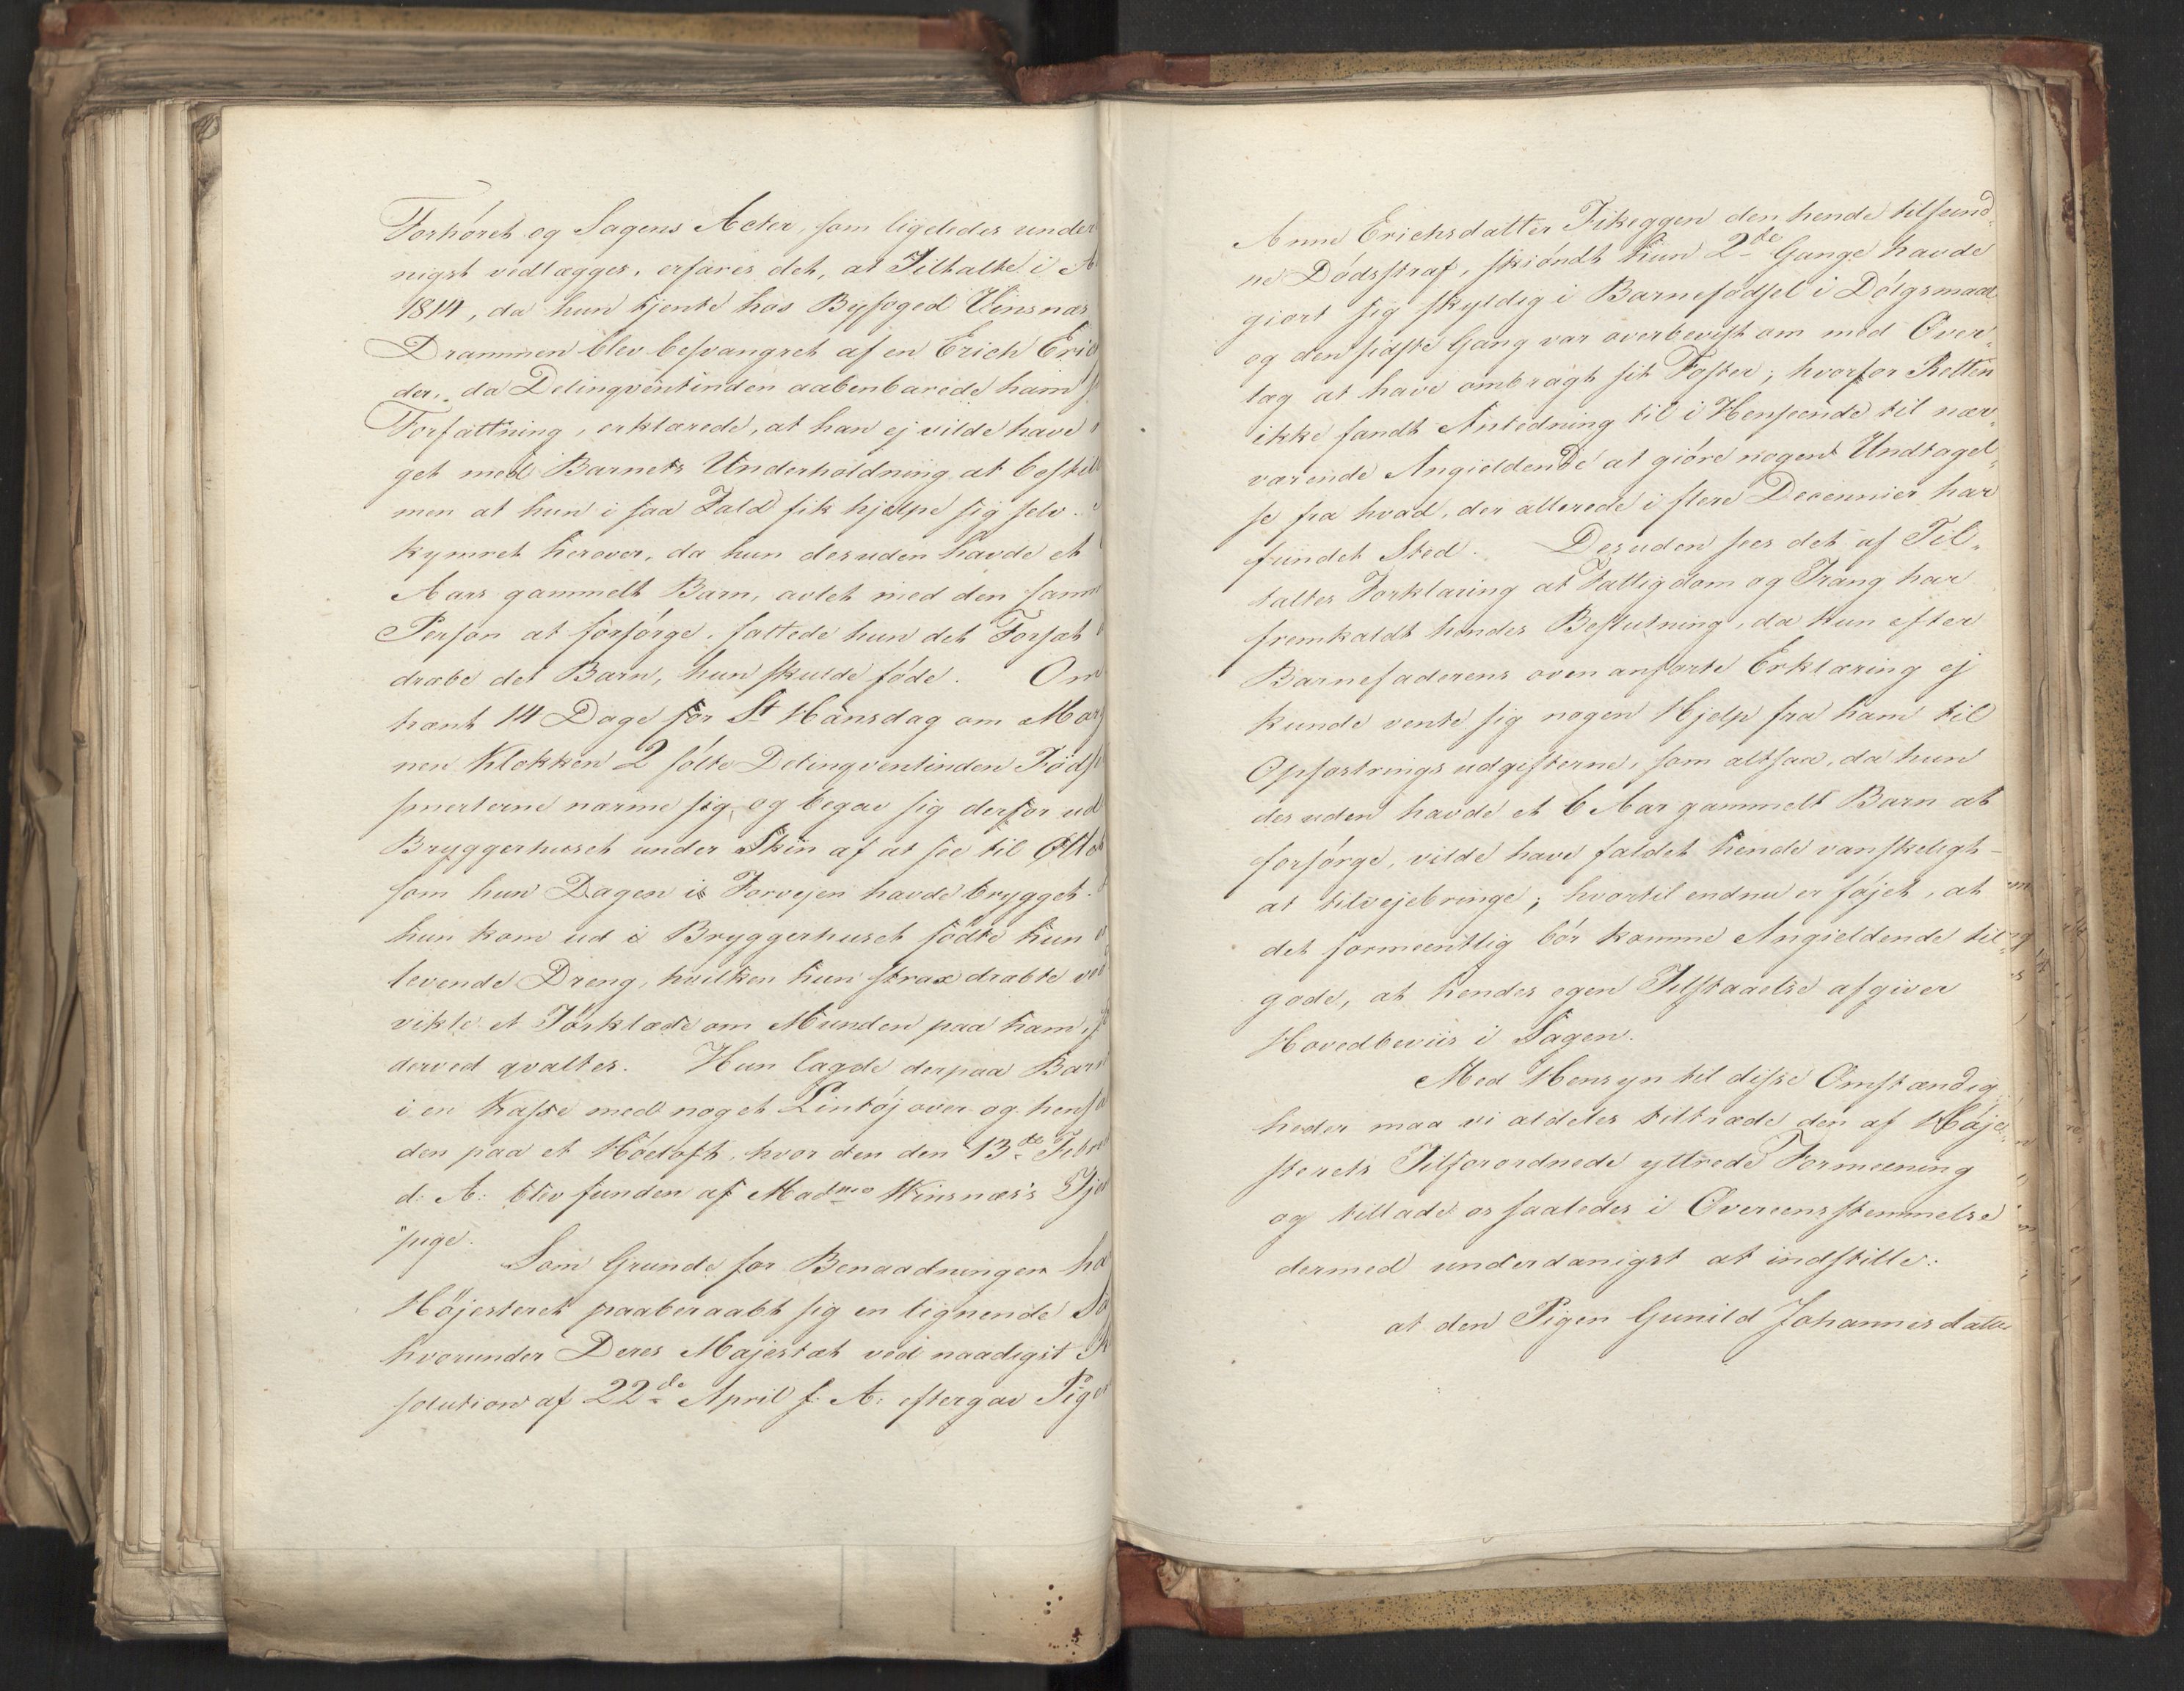 Forhöret og Sagens Acter, som ligeledes under
nigst vedlægges, erfares det, at Tiltalte i A
1814, da hun tjente hos Byfoged Vinsnæs
Drammen blev besvangret af en Erich Eric
der, da Delinqventinden aabenbarede ham s
Forfattning, erklærede, at han ej vilde have
get med Barnets Underholdning at bestil
men at hun i saa Fald fik hjelpe sig selv.
kymret herover, da hun desuden havde et
Aars gammelt Barn, avlet med den samm
Person at forsörge, fattede hun det Forsæt
dræbe det Barn, hun skulde föde. Om
hænt 14 Dage för St Hansdag om Mor
nen Klokken 2 fölte Delinqventinden Föds
smerterne nærme sig, og begav sig derfor ud
Bryggerhuset under Skin af at see til Öllet
som hun Dagen i Forvejen havde brygget.
hun kom ud i Bryggerhuset födte hun
levende Dreng, hvilken hun strax dræbte ved
vikle et Törklæde om Munden paa ham,
derved qvaltes. Hun lagde derpaa Barn
i en Kasse med noget Lintöj over og hensa
den paa et Höeloft, hvor den den 13de Febr
d: A: blev funden af Madme Winsnæs's Tje
"pige.
Som Grunde for Benaadningen ha
Höjesteret paaberaabt sig en lignende Sa
hvorunder Deres Majestæt ved naadigst R
solution af 22de April f: A: eftergav Pige
Anne Erichsdatter Fikeggen den hende tilfund„
ne Dödsstraf, skiöndt hun 2de Gange havde
giort sig skyldig i Barnefödsel i Dölgsmaal
og den sidste Gang var overbevist om med Over„
læg at have ombragt sit Foster; hvorfor Retten
ikke fandt Anledning til i Henseende til nær„
værende Angieldende at giöre nogen Undtagel„
se fra hvad, der allerede i flere Decennier har
fundet Sted. Desuden sees det af Til„
taltes Forklaring at Fattigdom og Trang har
fremkaldt hendes Beslutning, da hun efter
Barnefaderens ovenanförte Erklæring ej
kunde vente sig nogen Hjelp fra ham til
Opfostringsudgifterne, som altsaa, da hun
desuden havde et 6 Aar gammelt Barn at
forsörge, vilde have faldet hende vanskeligt
at tilvejebringe; hvortil endnu er föjet, at
det formeentlig bör komme Angieldende til„
gode, at hendes egen Tilstaaelse afgiver
Hovedbeviis i Sagen.
Med Hensyn til disse Omstændig„
heder maa vi aldeles tiltræde den af Höje„
sterets Tilforordnede yttrede Formeening
og tillade os saaledes i Overeensstemmelse
dermed underdanigst at indstille:
at den Pigen Gunild Johannisdatter